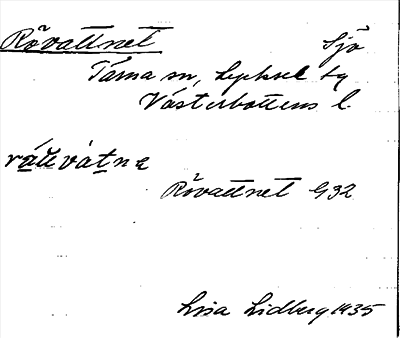 Rövattnet Sjö
Tärna sn, Lycksele tg
Västerbottens l.
Rövattnet G32
Lisa Lidberg 1935